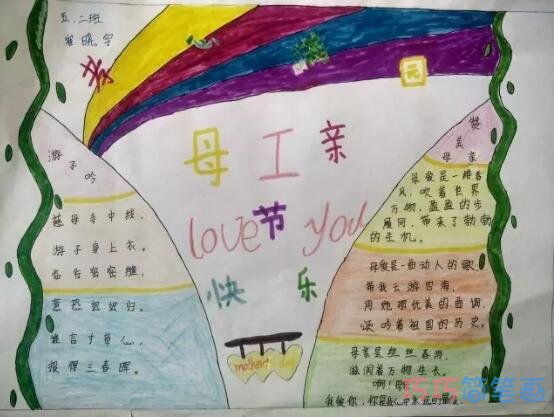 五.二班
崔晓宇
孝
满
元
母 I 亲
love 节 you
快 乐
mother's day
游子吟
慈母手中线，
游子身上衣。
临行密密缝，
意恐迟迟归。
谁言寸草心，
报得三春晖。
赞美母亲
母爱是一阵春
风，吹着世界
万物，盈盈的步
履间，带来了勃勃
的生机。
母爱是一曲动人的歌，
带我去游四海，
用她那优美的曲调，
颂吟着祖国的历史。
母亲是丝丝春雨，
滋润着万物生长，
啊！母
我爱你，你是我心中永远的
巧巧简笔画